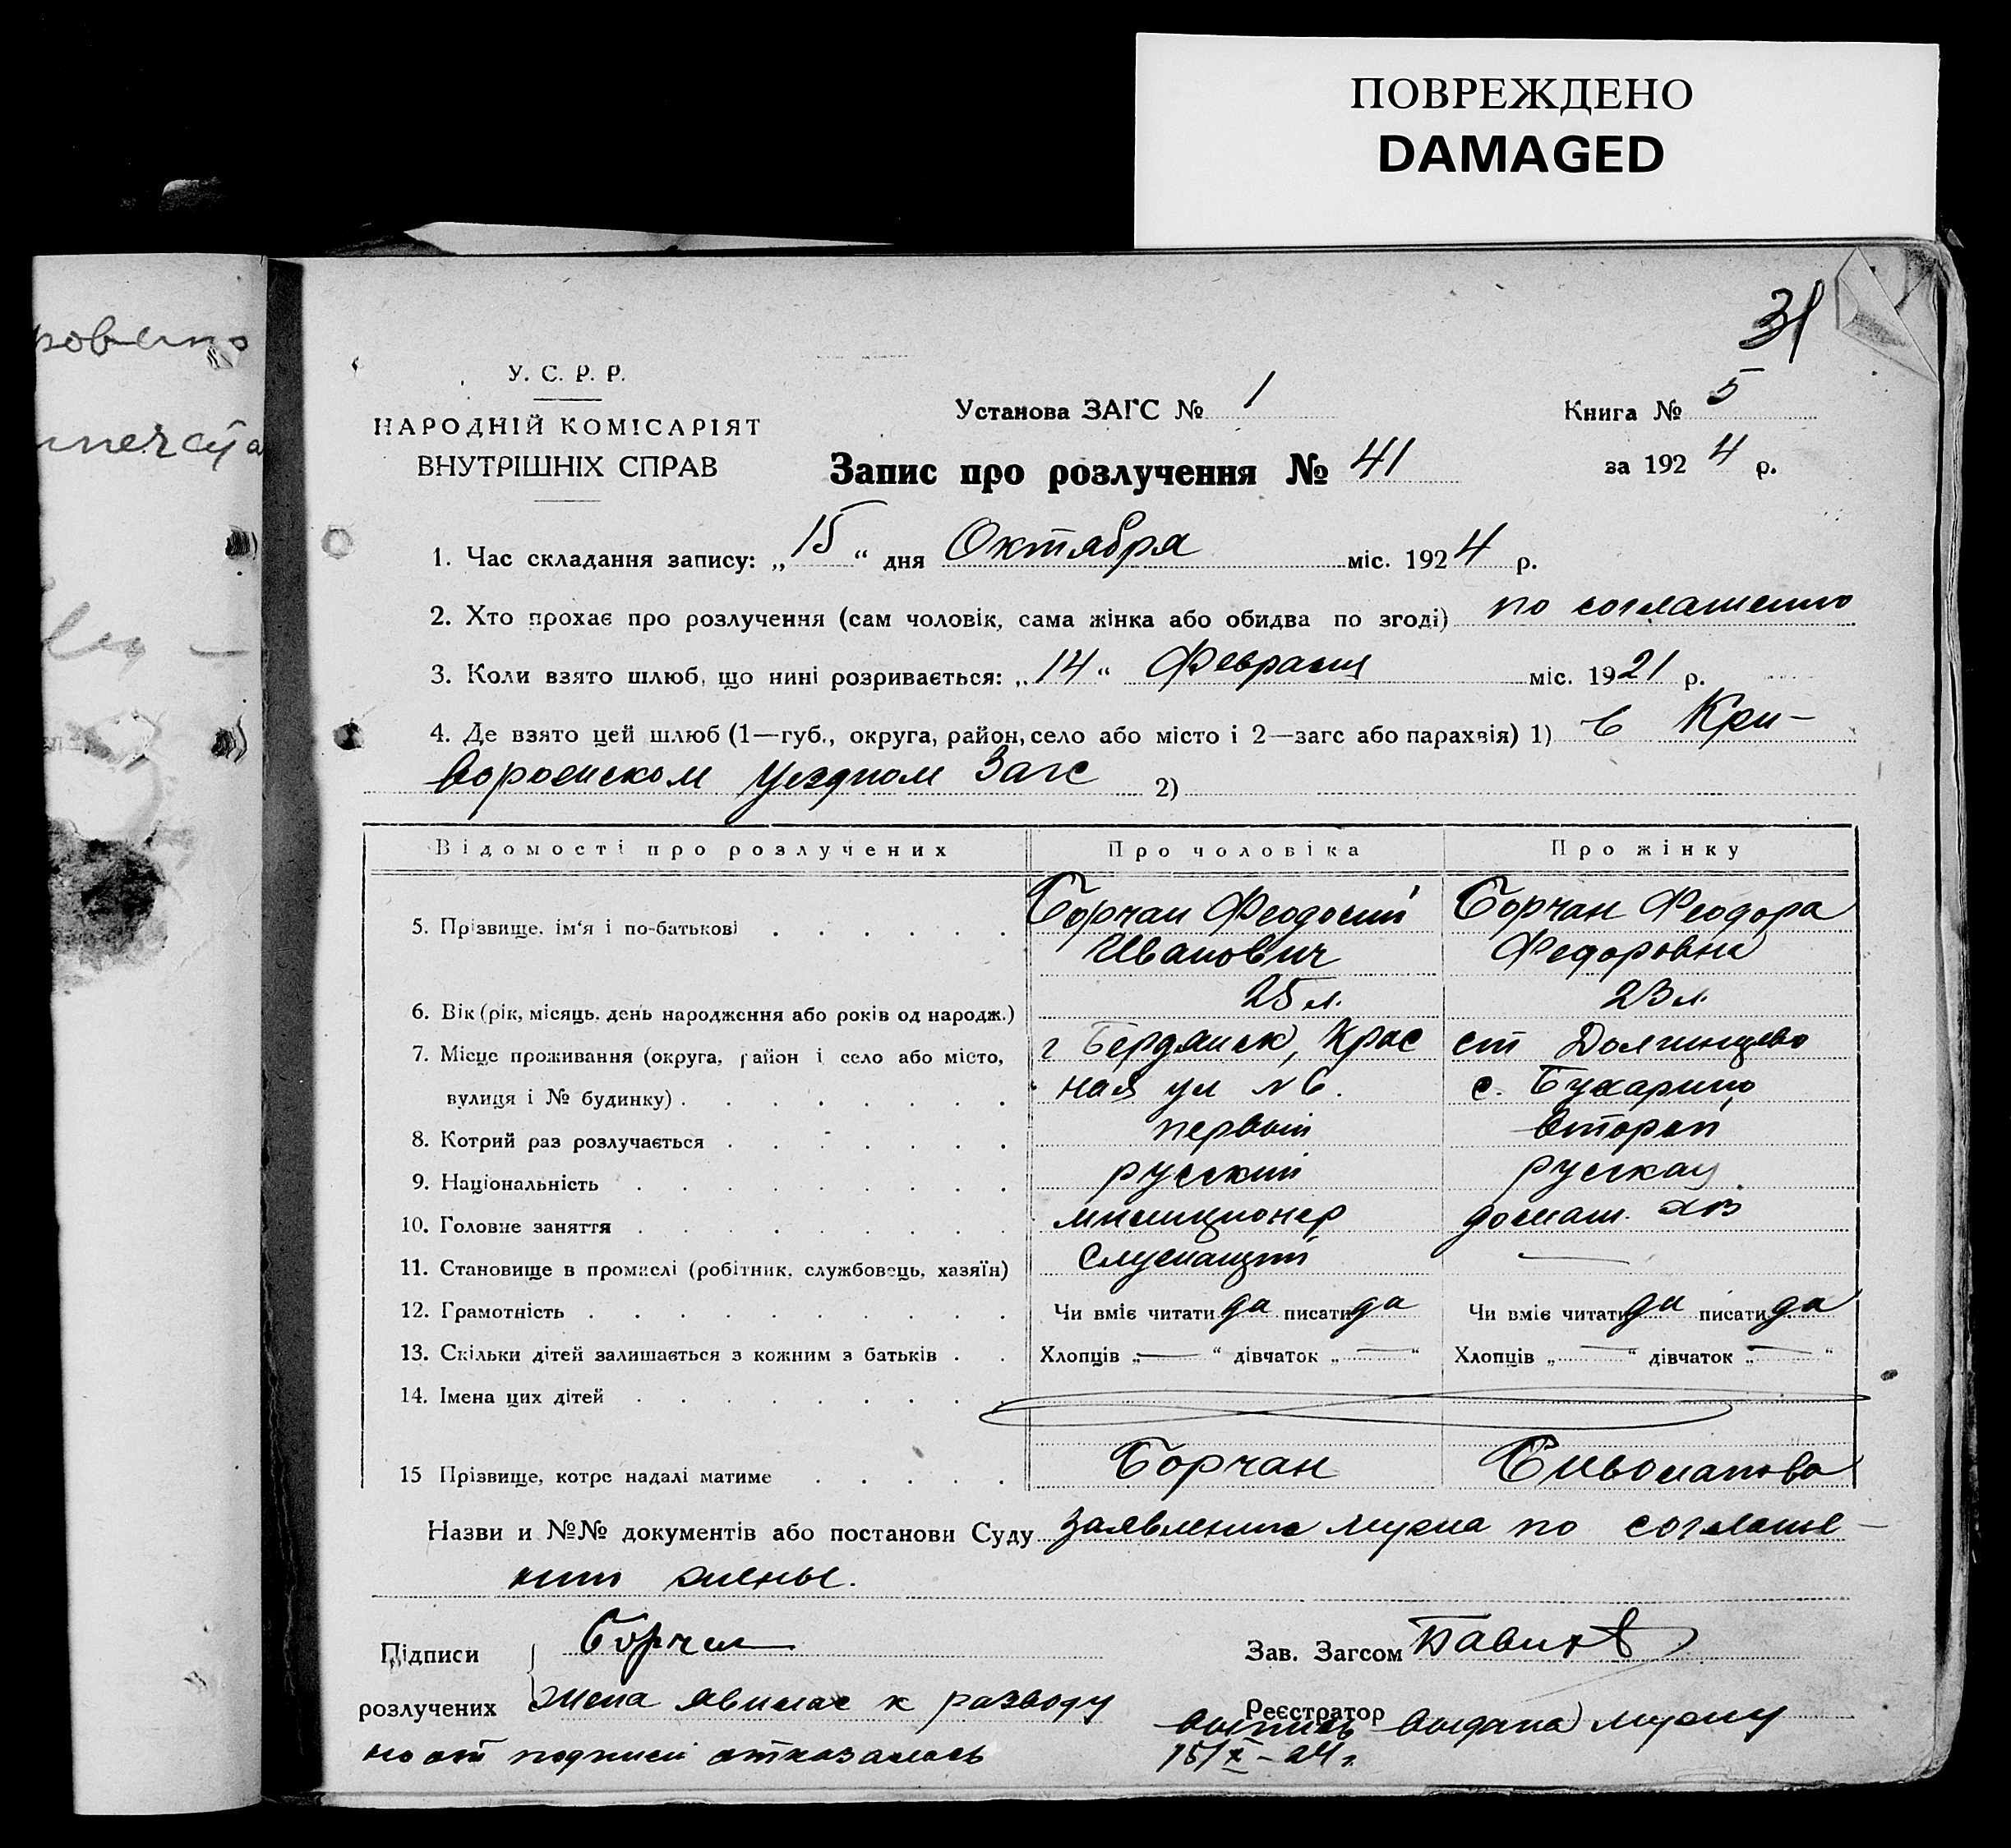 ПОВРЕЖДЕНО
DAMAGED
31
У. С. Р. Р.
НАРОДНІЙ КОМІСАРІЯТ
ВНУТРІШНІХ СПРАВ
Установа ЗАГС № 1
Книга № 5
за 1924 р.
Запис про розлучення № 41
1. Час складання запису: „15“ дня Октября міс. 1924 р.
2. Хто прохає про розлучення (сам чоловік, сама жінка або обидва по згоді) по соглашению
3. Коли взято шлюб, що нині розривається: „14“ Февраля міс. 1921 р.
4. Де взято цей шлюб (1—губ., округа, район, село або місто і 2—загс або парахвія) 1) в Кри-
ворожском Уездном Загс 2)
Відомості про розлучених Про чоловіка Про жінку
5. Прізвище, ім‘я і по-батькові Борчан Феодосий Борчан Феодора
Иванович Федоровна
6. Вік (рік, місяць, день народження або років од народж.) 25 л. 23 л.
7. Місце проживання (округа, район і село або місто, г Бердянск, Крас ст Долгинцево
вулиця і № будинку) ная ул № 6. с. Бухарино
8. Котрий раз розлучається первый второй
9. Національність русский русская
10. Головне заняття милиционер домаш. хоз
11. Становище в промислі (робітник, службовець, хазяїн) Служащий —
12. Грамотність Чи вміє читати да писати да Чи вміє читати да писати да
13. Скільки дітей залишається з кожним з батьків Хлопців „—“ дівчаток „—“ Хлопців „—“ дівчаток „—“
14. Імена цих дітей
15 Прізвище, котре надалі матиме Борчан
Назви и №№ документів або постанови Суду заявление мужа по соглаше-
нию жены.
Підписи Борчан Зав. Загсом
розлучених жена явилас к разводу Реєстратор
выпись выдана мужу
но от подписи отказалась 15/X-24 г.